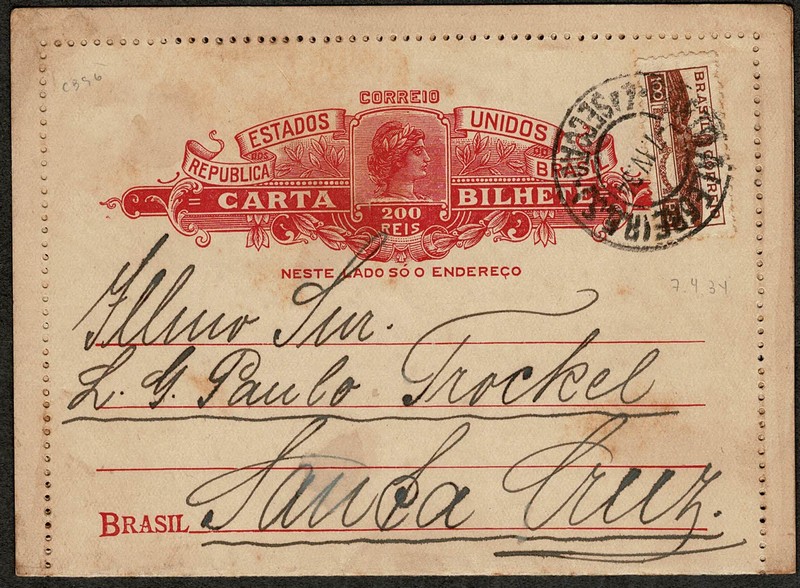 C396
CORREIO
ESTADOS UNIDOS
REPUBLICA DOS DO BRASIL
CARTA BILHETE
200
REIS
NESTE LADO SÓ O ENDEREÇO
BRASIL CORREIO
100
7.4.34
Illmo Snr.
L. G. Paulo Trockel
Santa Cruz.
BRASIL